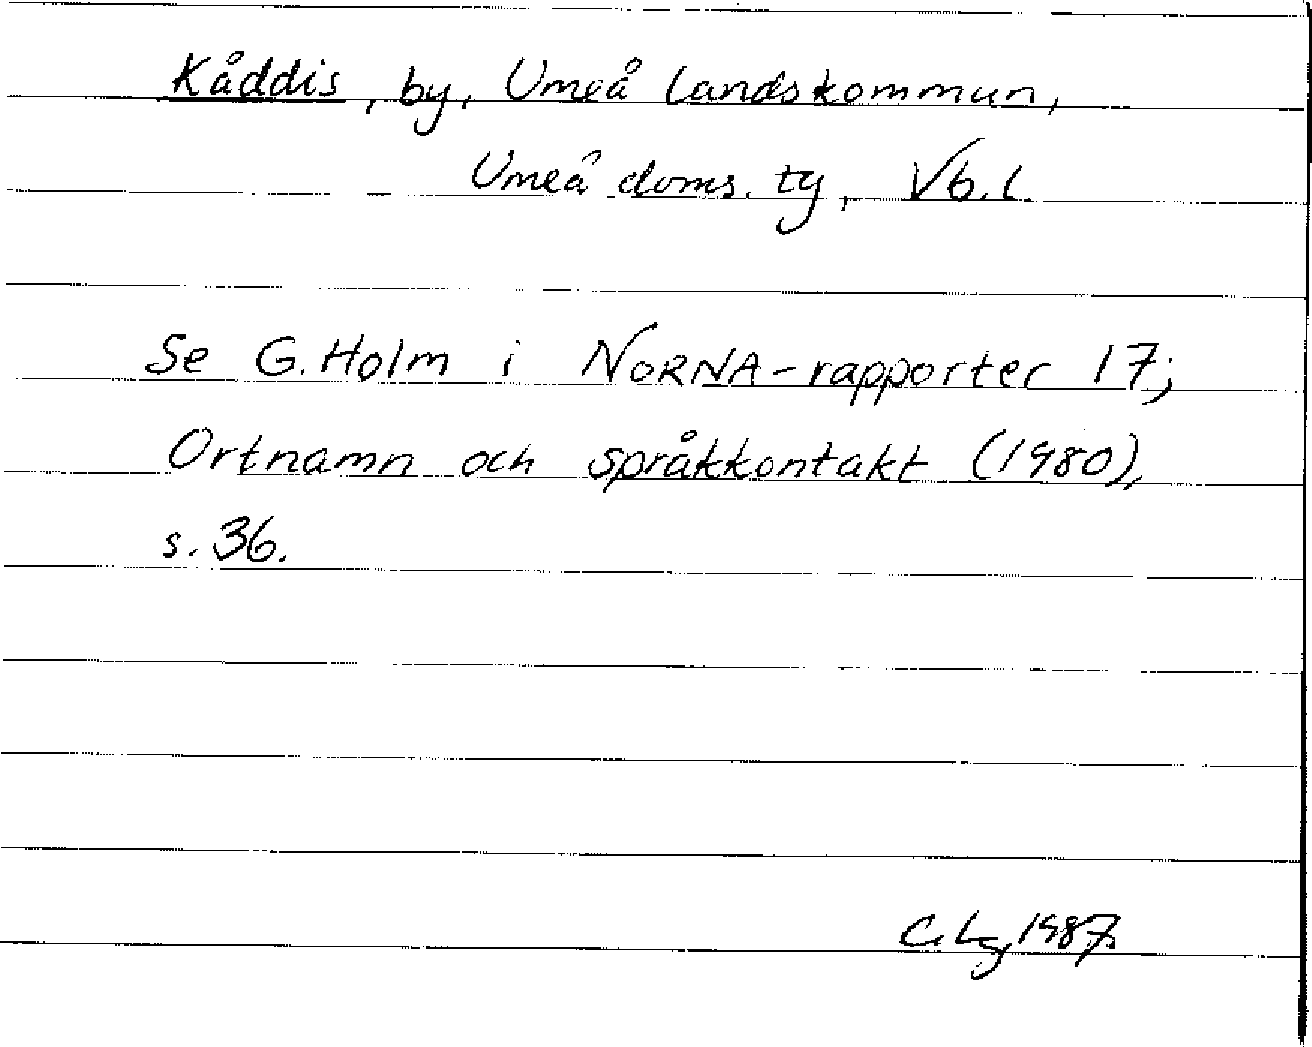 Kåddis, by, Umeå landskommun,
Umeå doms. tg, Vb. l.
Se G. Holm i NORNA-rapporter 17;
Ortnamn och språkkontakt (1980),
s. 36.
C. Lg 1987